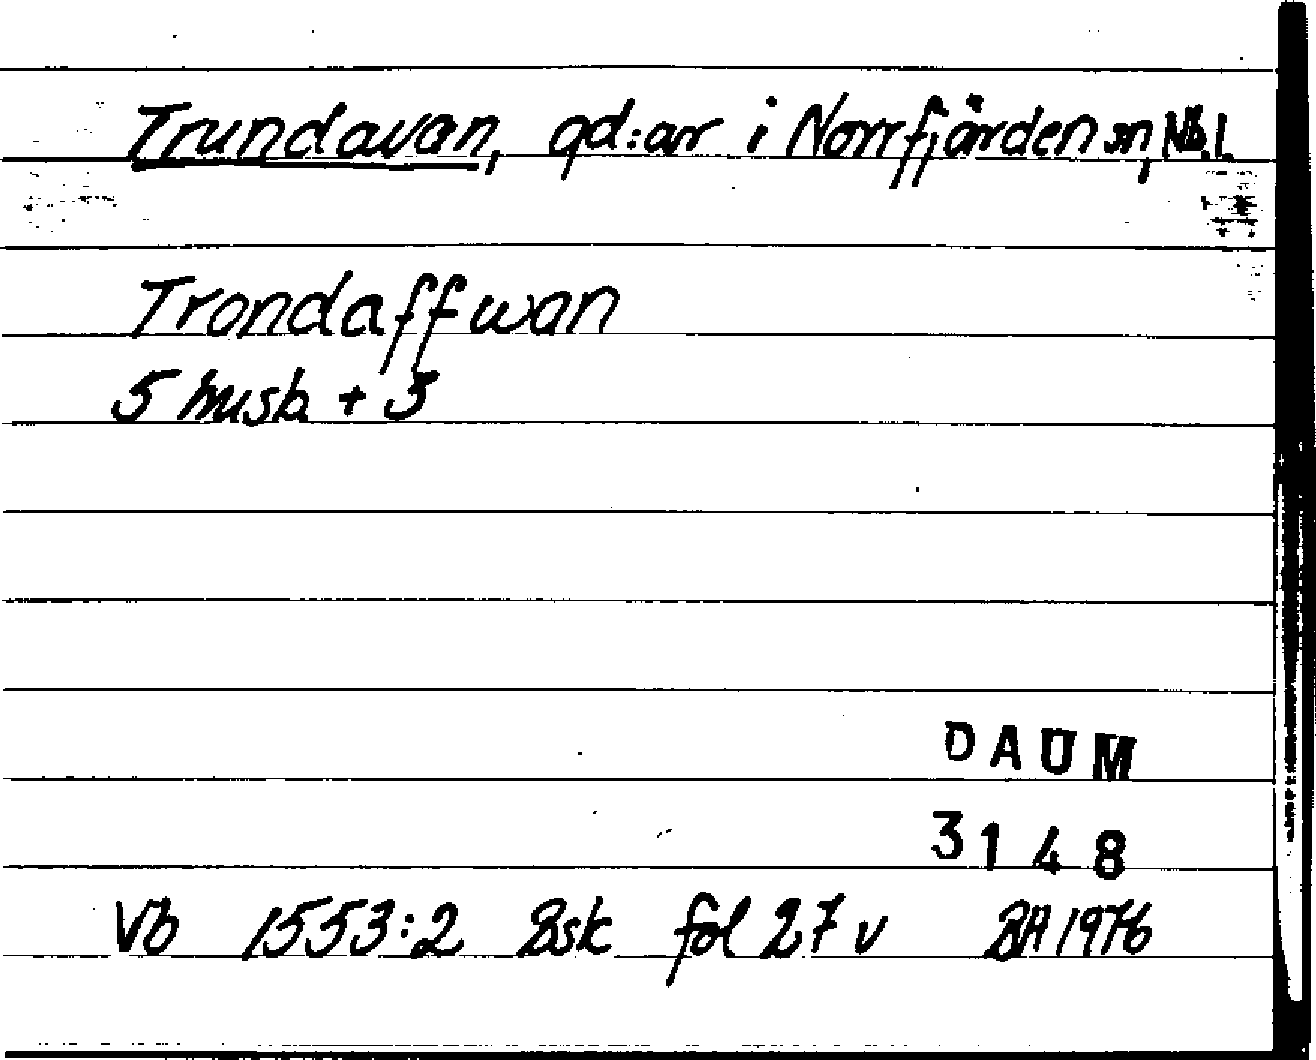 Trundavan, gd:ar i Norrfjärden sn, Nb. l.
Trondaffwan
5 husb. + 3
DAUM
3148
Vb 1553:2 Bsk fol 27 v BH 1976